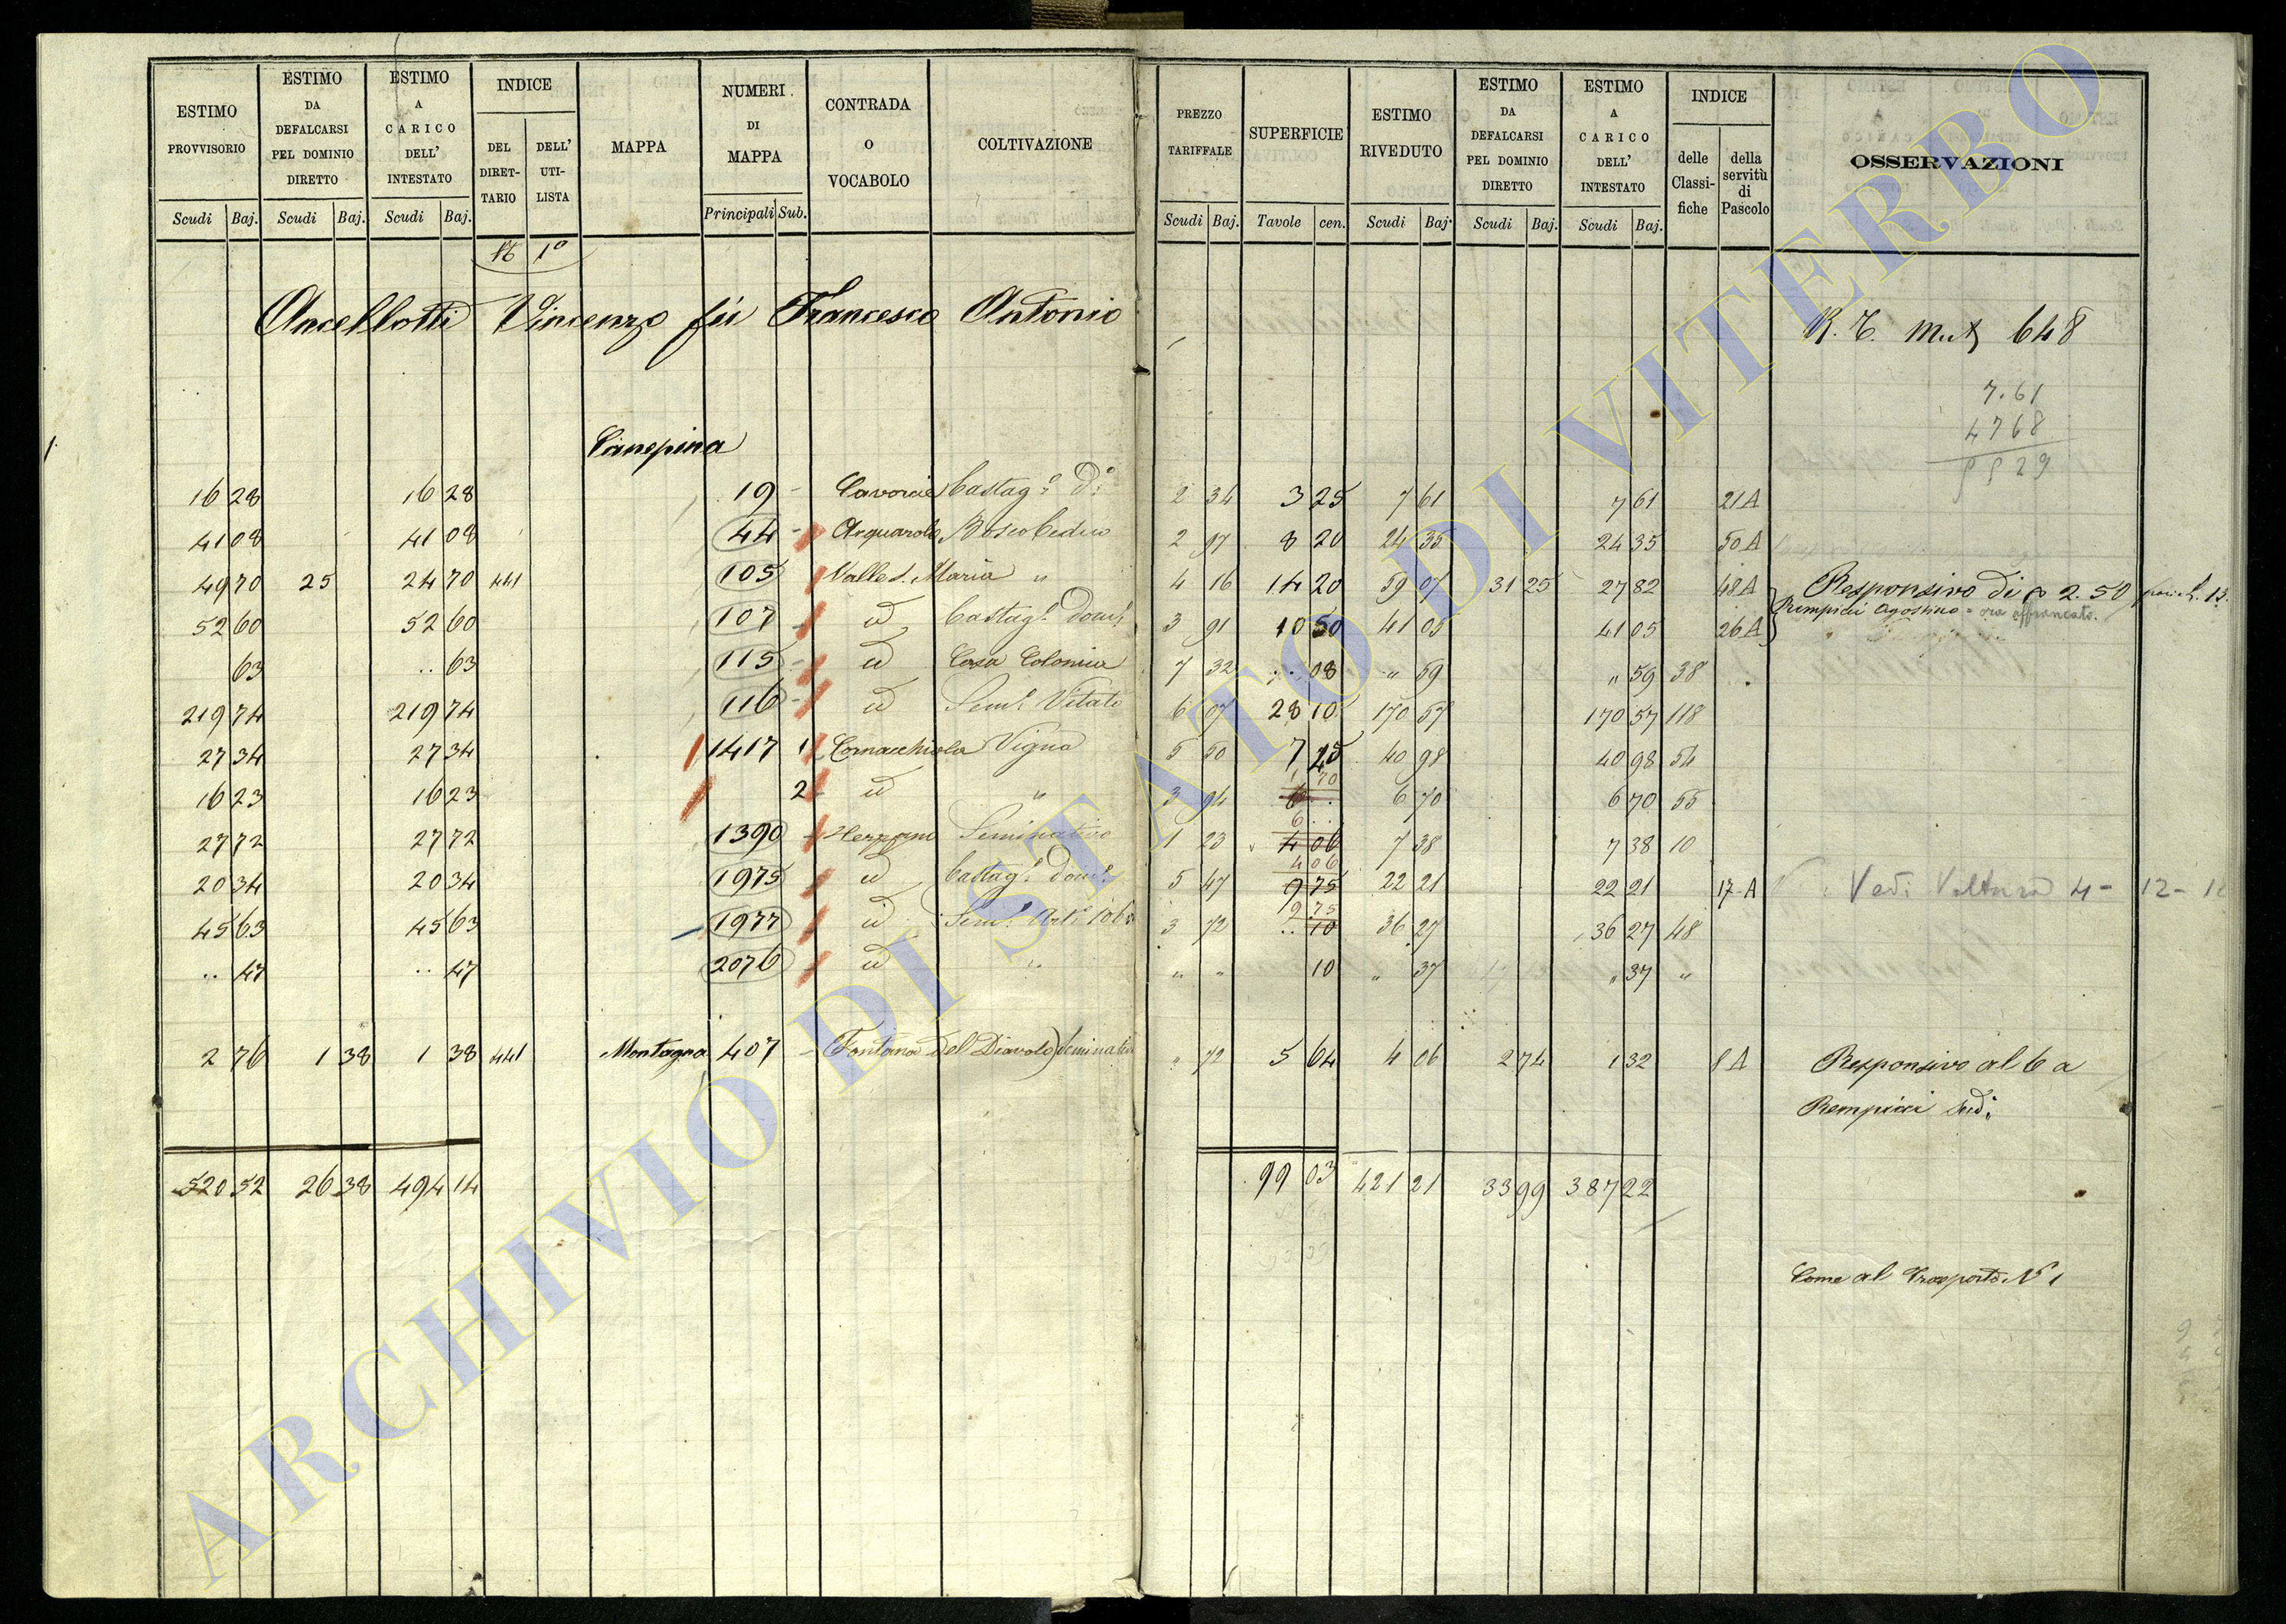 ESTIMO PROVVISORIO | ESTIMO DA DEFALCARSI PEL DOMINIO DIRETTO | ESTIMO A CARICO DELL' INTESTATO | INDICE DEL DIRETTARIO | DELL' UTILISTA | MAPPA | NUMERI DI MAPPA | CONTRADA O VOCABOLO | COLTIVAZIONE | PREZZO TARIFFALE | SUPERFICIE | ESTIMO RIVEDUTO | ESTIMO DA DEFALCARSI PEL DOMINIO DIRETTO | ESTIMO A CARICO DELL' INTESTATO | INDICE delle Classifiche | della servitù di Pascolo | OSSERVAZIONI
Scudi Baj. | Scudi Baj. | Scudi Baj. | Principali Sub. | Scudi Baj. | Tavole cen. | Scudi Baj. | Scudi Baj. | Scudi Baj.
1º
Ancellotti Vincenzo fu Francesco Antonio
648
7.61
4768
Canepina
16 28 | 16 28 | 19 | Castagº | 2 34 | 3 25 | 7 61 | 7 61 | 21 A
41 08 | 41 08 | 44 | Bosco Ceduo | 2 97 | 8 20 | 24 35 | 24 35 | 50 A
49 70 | 25 | 24 70 | 441 | 105 | Valle S. Maria | " | 4 16 | 14 20 | 59 07 | 31 25 | 27 82 | 48 A | Responsivo di 2.50
Rempicci Agostino = ora affrancato.
52 60 | 52 60 | 107 | id | Castagº Domº | 3 91 | 10 50 | 41 05 | 41 05 | 26 A
63 | .. 63 | 115 | id | Casa Colonica | 7 32 | .. 08 | " 59 | " 59 | 38
219 74 | 219 74 | 116 | id | Semº Vitato | 6 07 | 28 10 | 170 57 | 170 57 | 118
27 34 | 27 34 | 1417 1 | Cornacchiola | Vigna | 5 50 | 7 45 | 40 98 | 40 98 | 54
16 23 | 16 23 | 2 | id | " | 3 94 | 1 70 | 6 70 | 6 70 | 55
27 72 | 27 72 | 1390 | Seminativo | 1 23 | 6 .. | 7 38 | 7 38 | 10
20 34 | 20 34 | 1975 | id | Castagº Domº | 5 47 | 4 06 | 22 21 | 22 21 | 17 - A | Vedi Voltura 4 - 12 -
45 63 | 45 63 | 1977 | id | Semº | 3 72 | 9 75 | 36 27 | 36 27 | 48
.. 47 | .. 47 | 2076 | id | " | " " | 10 | " 37 | " 37 | "
2 76 | 1 38 | 1 38 | 441 | Montagna | 407 | Fontana del Diavolo | Seminativo | " 72 | 5 64 | 4 06 | 2 74 | 1 32 | 8 A | Responsivo al 6 a
Rempicci
520 52 | 26 38 | 494 14 | 99 03 | 421 21 | 33 99 | 387 22
Come al Trasporto Nº 1
ARCHIVIO DI STATO DI VITERBO